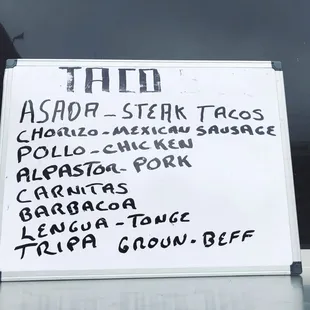 TACO
ASADA - STEAK TACOS
CHORIZO - MEXICAN SAUSAGE
POLLO - CHICKEN
ALPASTOR - PORK
CARNITAS
BARBACOA
LENGUA - TONGE
TRIPA GROUN - BEFF